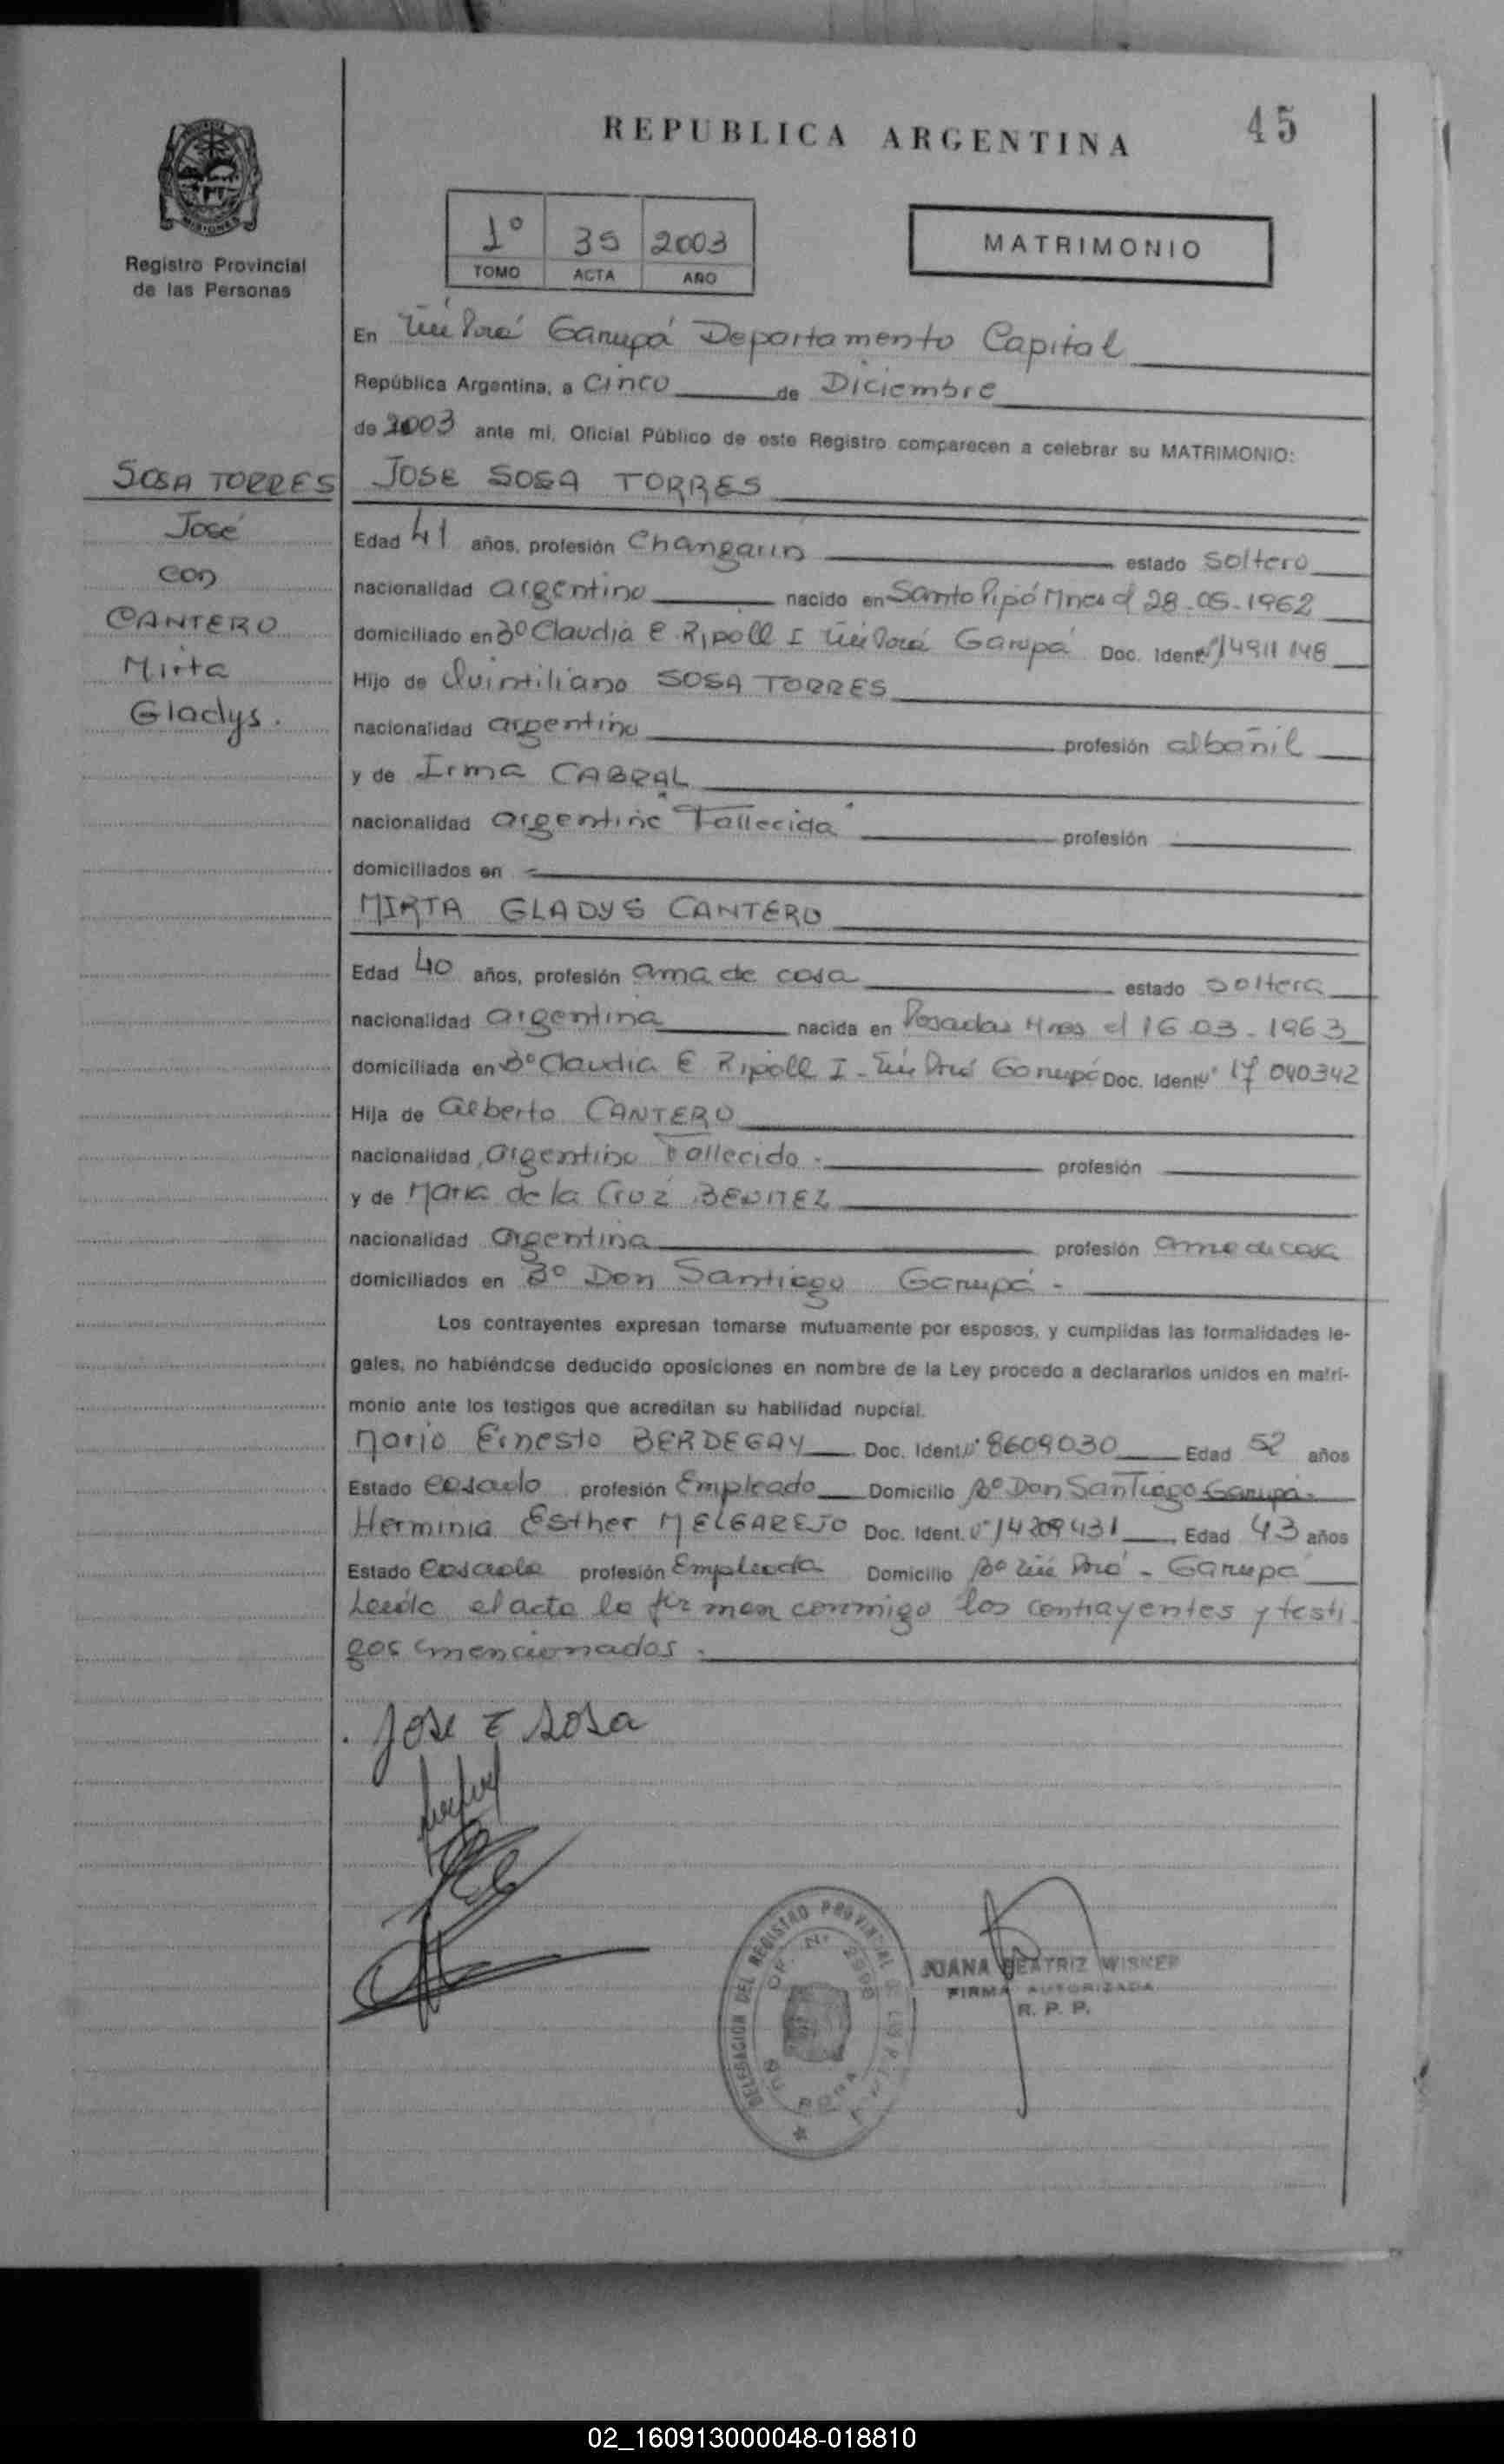 45
REPUBLICA ARGENTINA
Registro Provincial
de las Personas
1º 35 2003
TOMO ACTA AÑO
MATRIMONIO
En Ñú Porá Garupá Departamento Capital
República Argentina, a Cinco de Diciembre
de 2003 ante mi, Oficial Público de este Registro comparecen a celebrar su MATRIMONIO:
SOSA TORRES
José
con
CANTERO
Mirta
Gladys.
JOSE SOSA TORRES
Edad 41 años, profesión Changarin estado Soltero
nacionalidad argentino nacido en Santo Pipó Mnes el 28-05-1962
domiciliado en Bº Claudia E. Ripoll I Ñú Porá Garupá Doc. Ident. Nº 14911148
Hijo de Quintiliano SOSA TORRES
nacionalidad argentino profesión albañil
y de Irma CABRAL
nacionalidad argentina "Fallecida" profesión
domiciliados en
MIRTA GLADYS CANTERO
Edad 40 años, profesión ama de casa estado Soltera
nacionalidad argentina nacida en Posadas Mnes el 16.03-1963
domiciliada en Bº Claudia E Ripoll I - Ñú Porá Garupá Doc. Ident. Nº 17 040342
Hija de Alberto CANTERO
nacionalidad Argentino Fallecido. profesión
y de Maria de la Cruz BENITEZ
nacionalidad Argentina profesión ama de casa
domiciliados en Bº Don Santiago Garupá -
Los contrayentes expresan tomarse mutuamente por esposos, y cumplidas las formalidades le-
gales, no habiéndose deducido oposiciones en nombre de la Ley procedo a declararlos unidos en matri-
monio ante los testigos que acreditan su habilidad nupcial.
Mario Ernesto BERDEGAY Doc. Ident. Nº 8609030 Edad 52 años
Estado Casado profesión Empleado Domicilio Bº Don Santiago Garupá.
Herminia Esther MELGAREJO Doc. Ident. Nº 14209431 Edad 43 años
Estado Casada profesión Empleada Domicilio Bº Ñú Porá - Garupá
Leída el acta la firman conmigo los contrayentes y testi
gos mencionados.
Jose E Sosa
DELEGACION DEL REGISTRO PROVINCIAL
JUANA BEATRIZ WISNER
FIRMA AUTORIZADA
R. P. P.
02_160913000048-018810